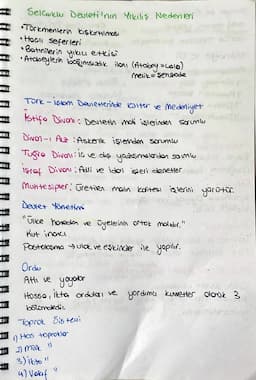 Selçuklu Devleti'nin Yıkılış Nedenleri
• Türkmenlerin kışkırtılması
• Haçlı seferleri
• Batınilerin yıkıcı etkisi
• Atabeylerin bağımsızlık ilanı (Atabey = Lala)
melik = Şehzade
Türk-İslam Devletlerinde Kültür ve Medeniyet
İstifa Divanı: Devletin mali işlerinden sorumlu
Divan-ı Arz: Askerlik işlerinden sorumlu
Tuğra Divanı: İç ve dış yazışmalardan sorumlu
İşraf Divanı: Adli ve idari işleri denetler
Muhtesipler: Üretilen malın kalitesi işlerini yürütür.
Devlet Yönetimi
"Ülke hanedan ve üyelerinin ortak malıdır."
Kut inancı
Postalaşma → ulak ve eşkinciler ile yapılır.
Ordu
Atlı ve yayalar
Hassa, ikta orduları ve yardımcı kuvvetler olarak 3
bölümdedir.
Toprak Sistemi
1) Has topraklar
2) Mülk "
3) İkta "
4) Vakıf "